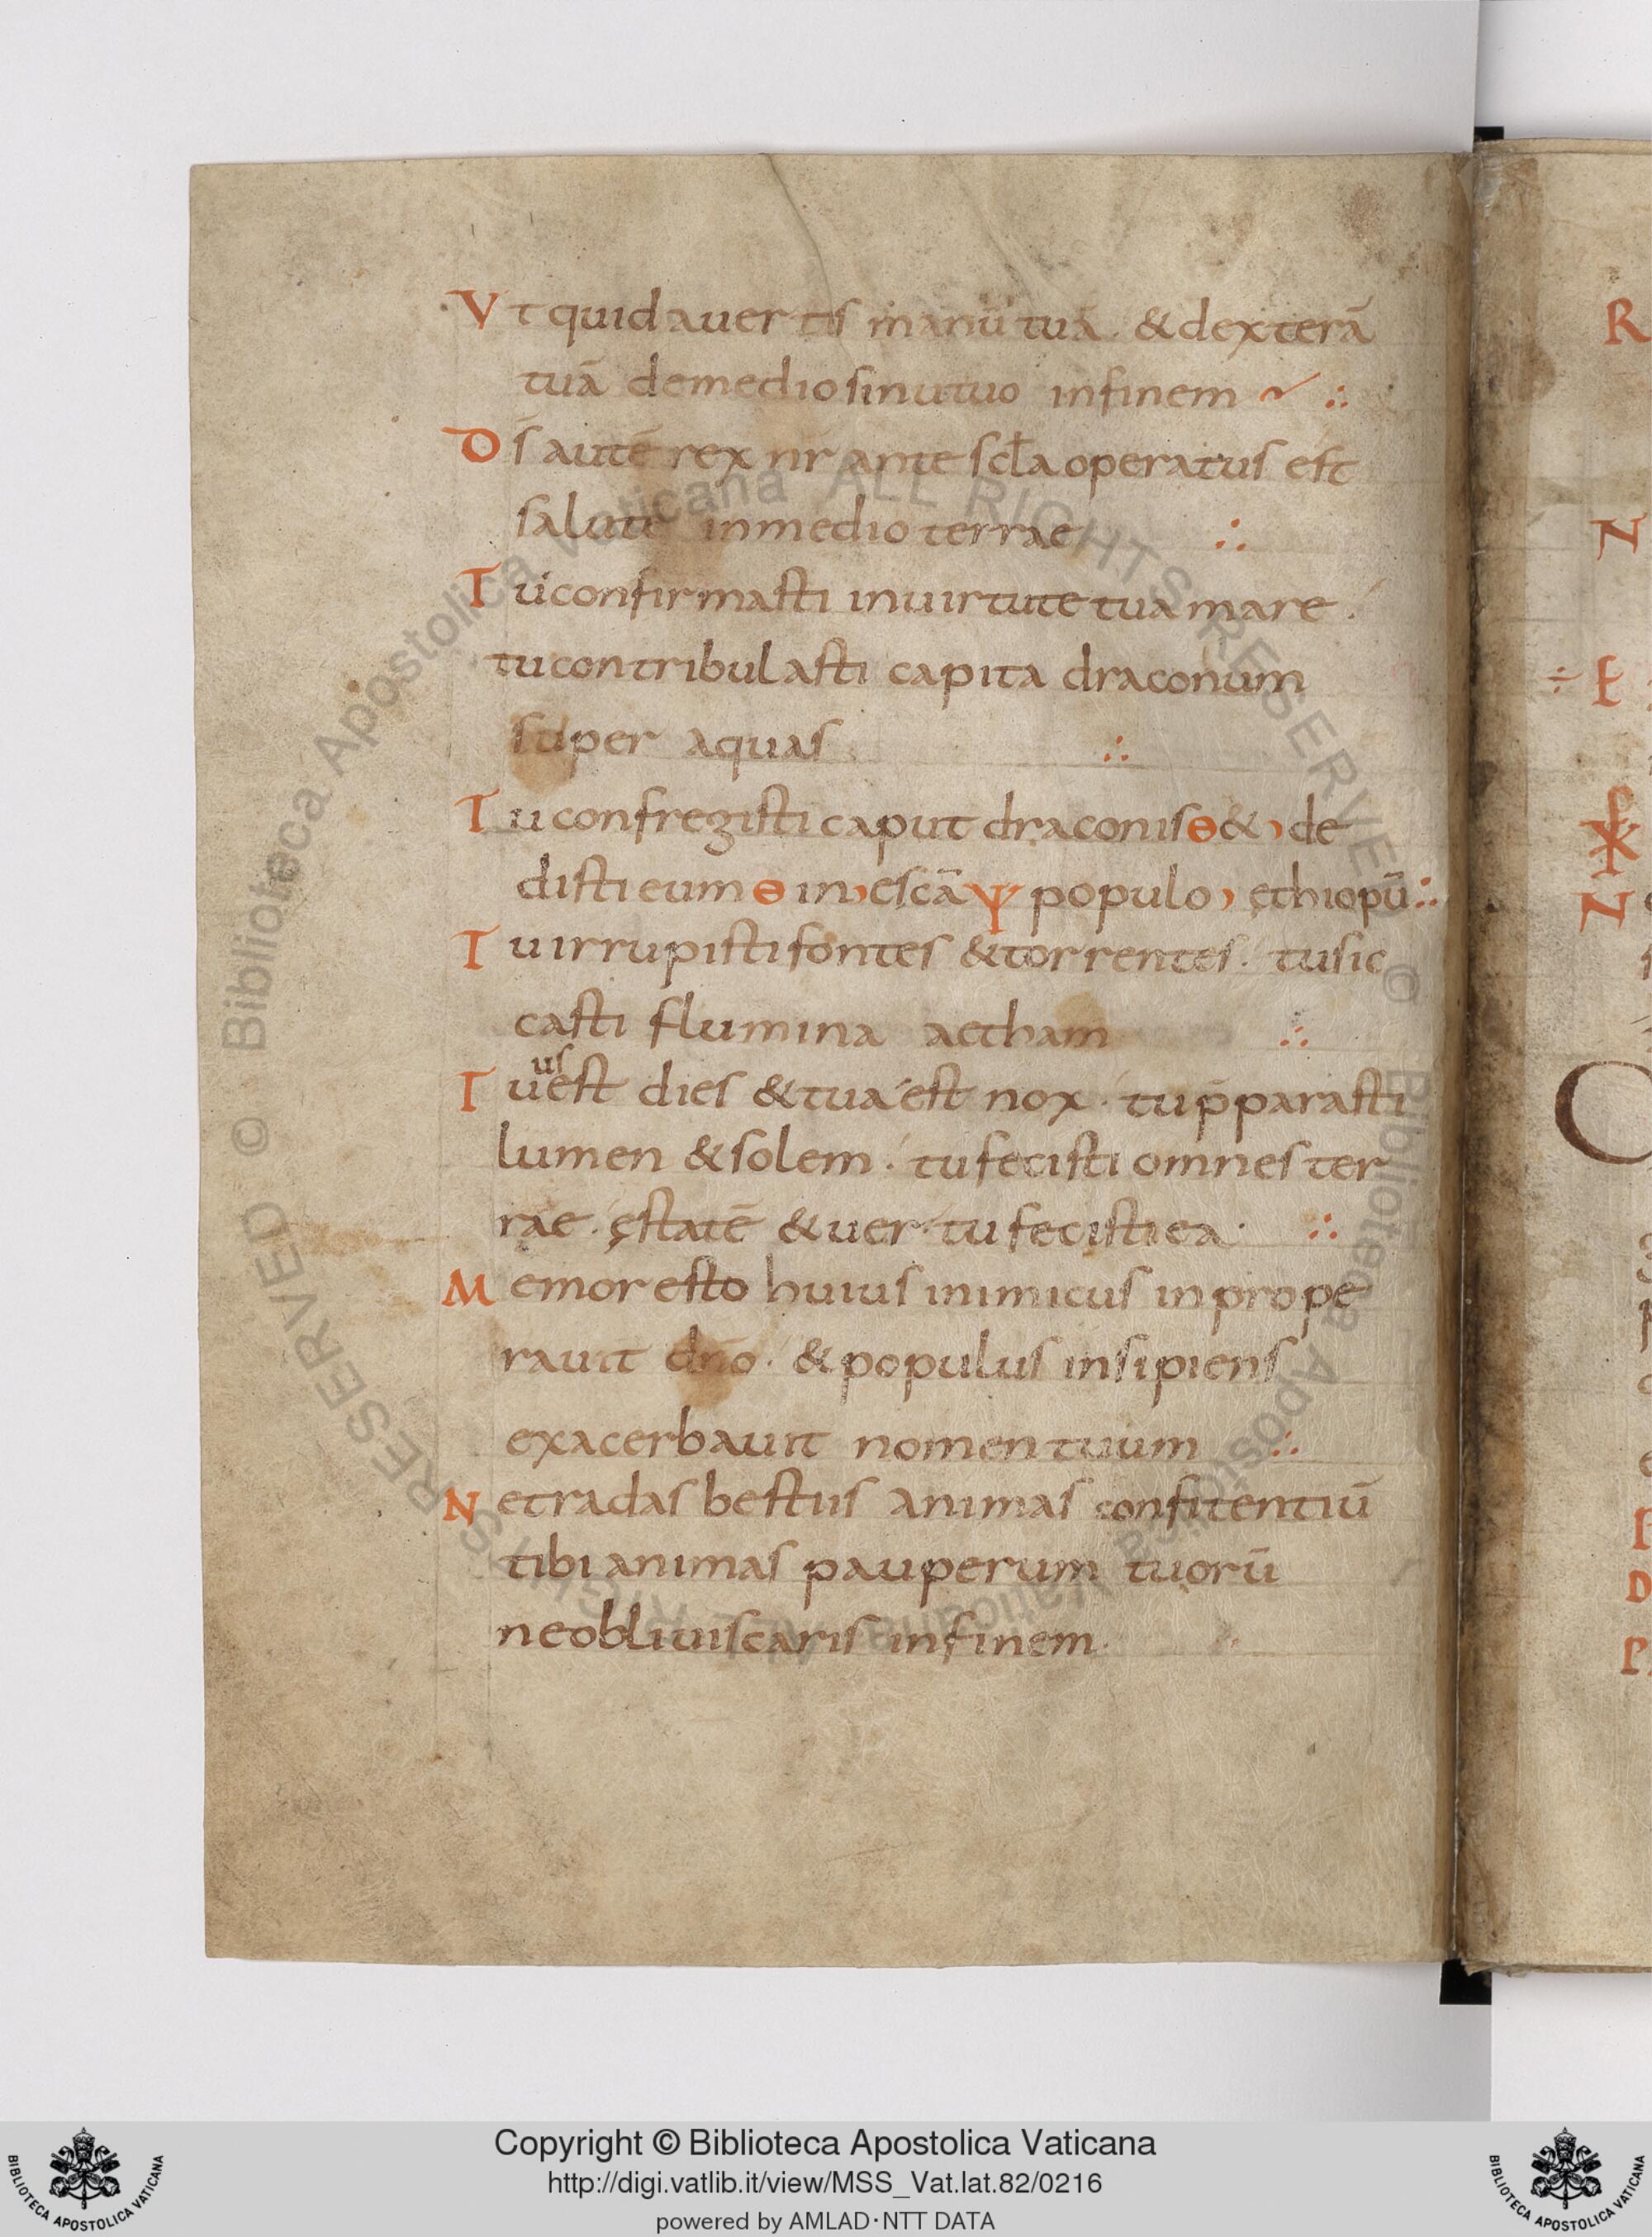 Vt quid auertis manū tuā · & dexterā
tuā de medio sinu tuo in finem ∴
Ds̄ autē rex nr̄ ante scl̄a operatus est
salutē in medio terrae ∴
Tu confirmasti in uirtute tua mare ·
tu contribulasti capita draconum
super aquas ∴
Tu confregisti caput draconis ɵ & , de
disti eum ɵ in , escā ψ populo , ęthiopū ∴
Tu irrupisti fontes & torrentes · tu sic
casti flumina aetham ∴
us
Tu est dies & tua est nox · tu p̄parasti
lumen & solem · tu fecisti omnes ter
rae · ęstatē & uer · tu fecisti ea · ∴
Memor esto huius inimicus in prope
rauit dn̄o · & populus insipiens
exacerbauit nomen tuum ∴
Ne tradas bestiis animas confitentiū
tibi animas pauperum tuorū
ne obliuiscaris in finem ·
R
N
÷ E
N
C
P
D
P
Biblioteca Apostolica Vaticana ALL RIGHTS RESERVED © Biblioteca Apostolica Vaticana ALL RIGHTS RESERVED ©
Copyright © Biblioteca Apostolica Vaticana
http://digi.vatlib.it/view/MSS_Vat.lat.82/0216
powered by AMLAD·NTT DATA
BIBLIOTECA APOSTOLICA VATICANA
BIBLIOTECA APOSTOLICA VATICANA